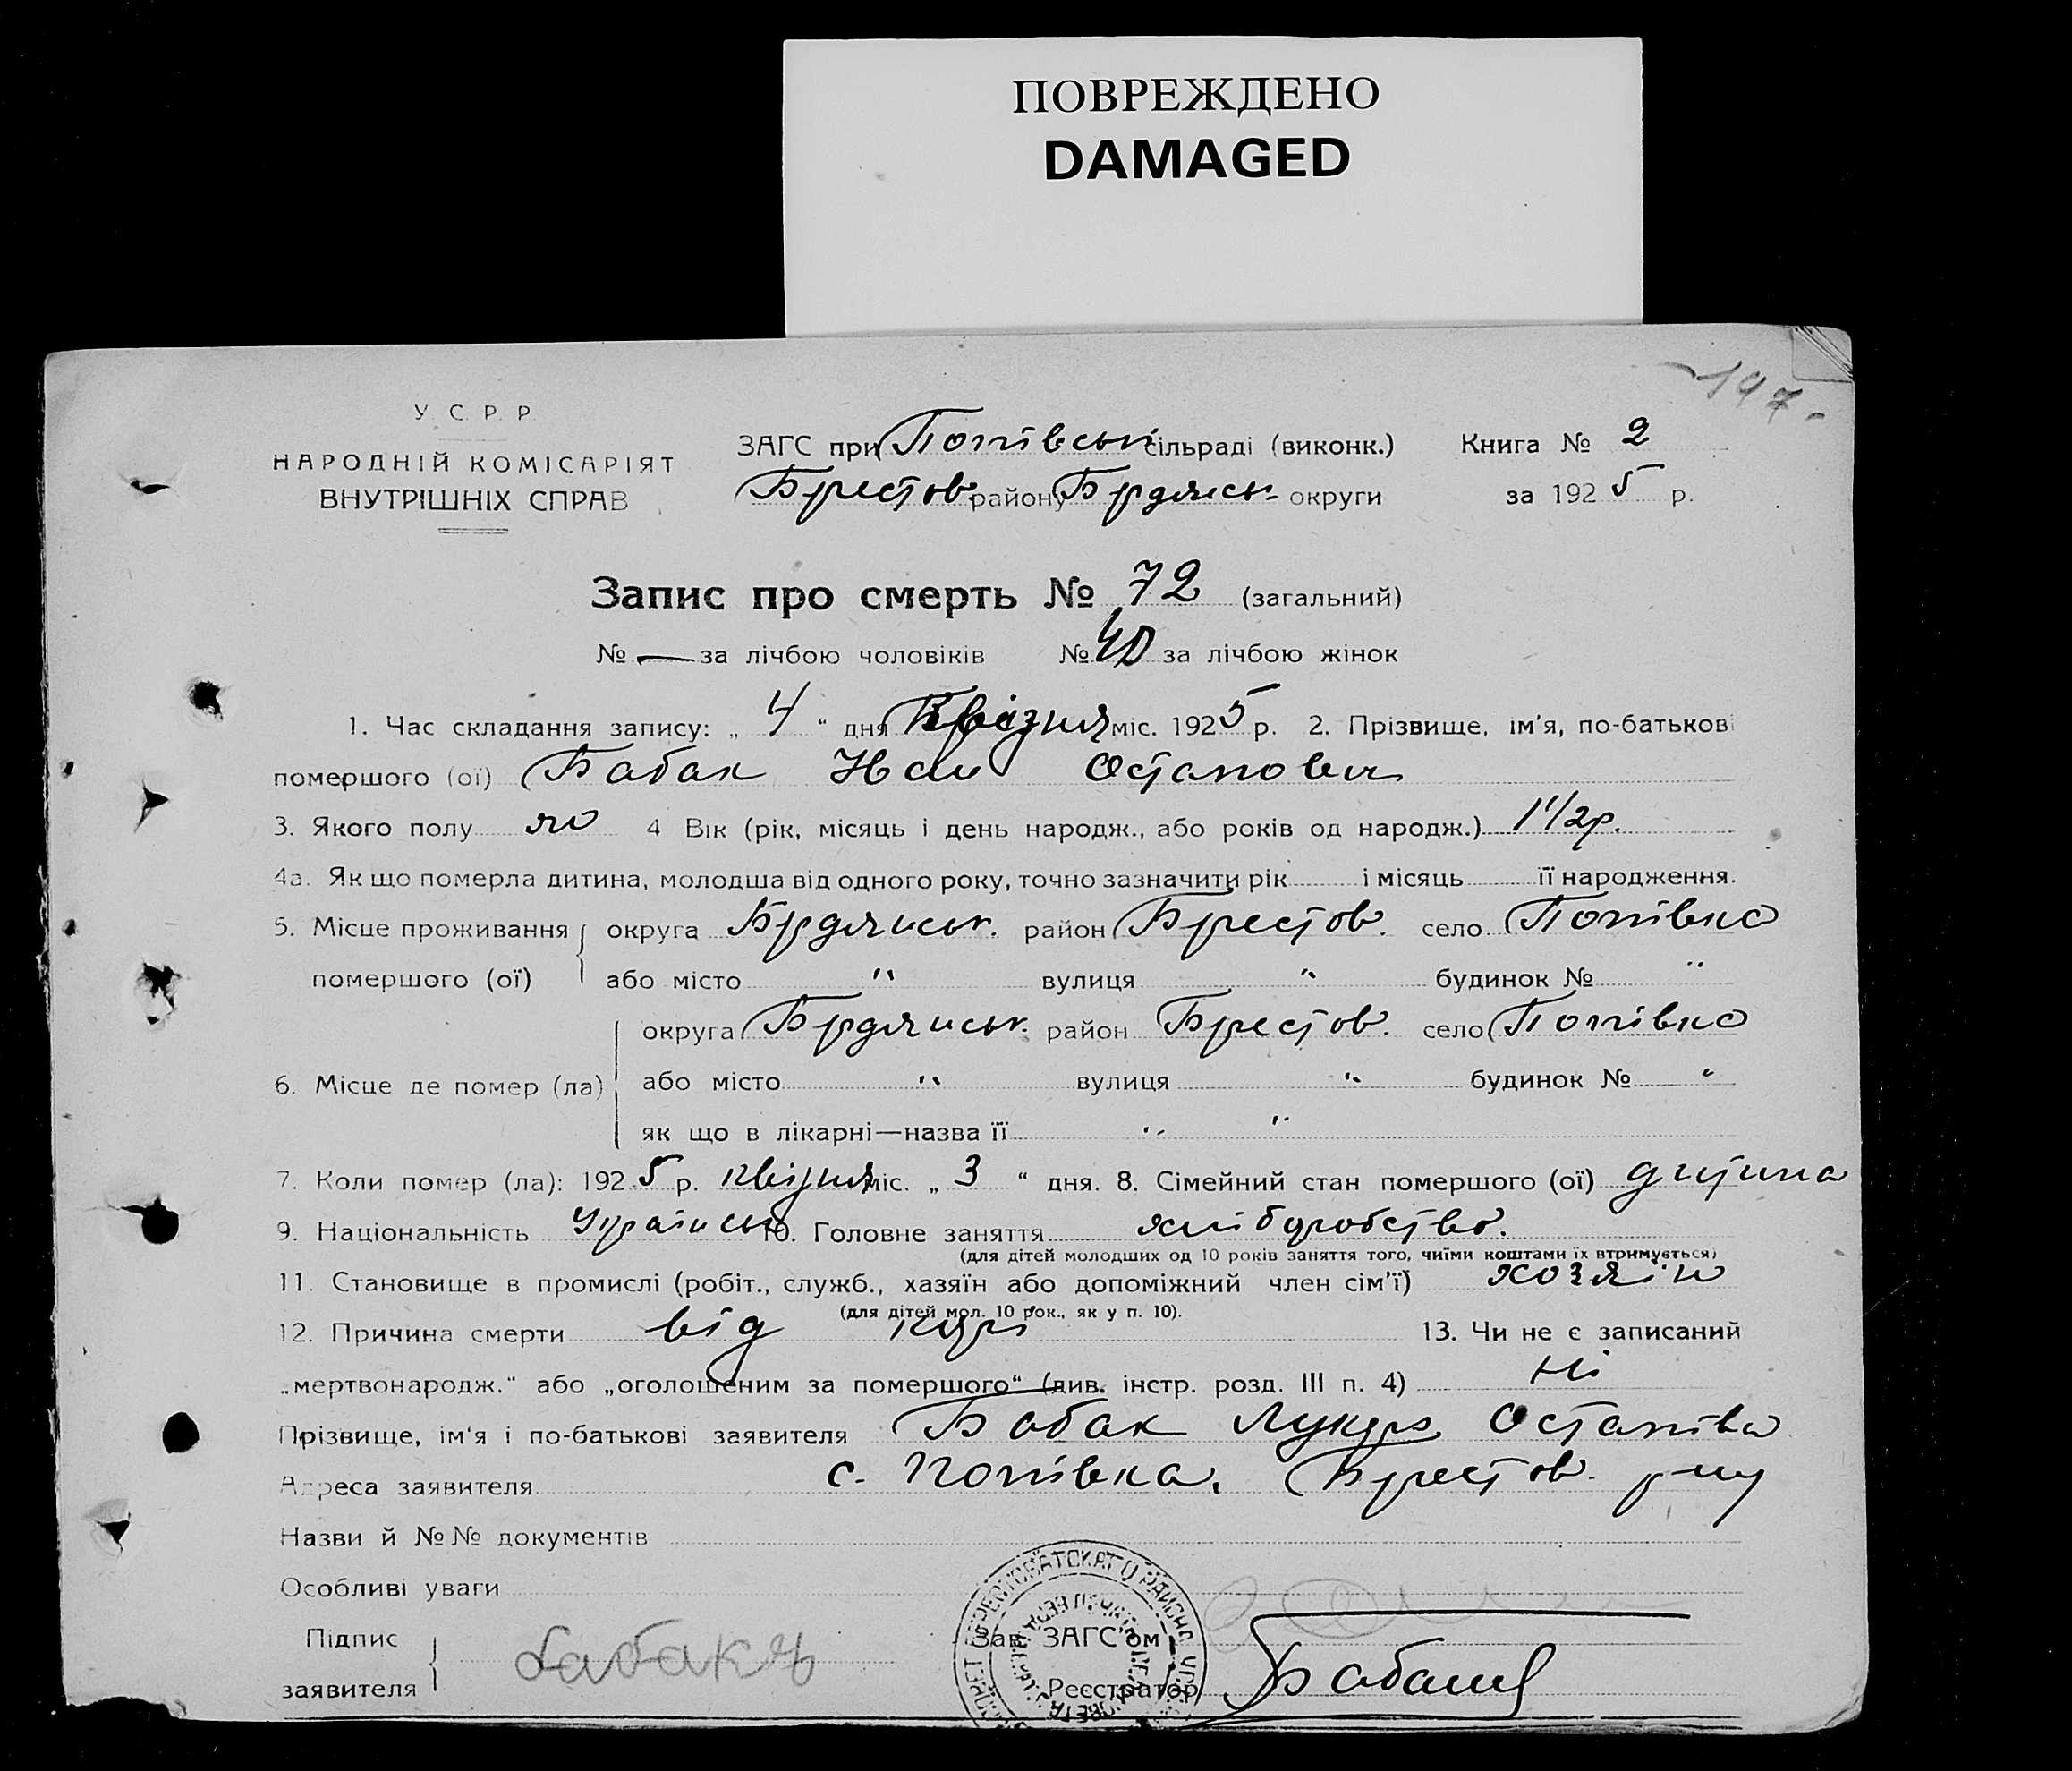 ПОВРЕЖДЕНО
DAMAGED
197-
У. С. Р. Р
НАРОДНІЙ КОМІСАРІЯТ
ВНУТРІШНІХ СПРАВ
ЗАГС при Попівськ сільраді (виконк.) Книга № 2
Брестов. району Брдянськ. округи за 1925 р.
Запис про смерть № 72 (загальний)
№ — за лічбою чоловіків № 40 за лічбою жінок
1. Час складання запису: „ 4 “ дня Квітня міс. 1925 р. 2. Прізвище, ім'я, по-батькові
помершого (ої) Бабак Остапович
3. Якого полу 4 Вік (рік, місяць і день народж., або років од народж.) 1 1/2 р.
4а. Як що померла дитина, молодша від одного року, точно зазначити рік і місяць її народження.
5. Місце проживання округа Брдянськ. район Брестов. село Попівка
помершого (ої) або місто " вулиця " будинок № "
округа Брдянськ. район Брестов. село Попівка
6. Місце де помер (ла) або місто " вулиця " будинок № "
як що в лікарні—назва її " "
7. Коли помер (ла): 1925 р. квітня міс. „ 3 “ дня. 8. Сімейний стан помершого (ої) дитина
9. Національність Українськ 10. Головне заняття хліборобство.
(для дітей молодших од 10 років заняття того, чиїми коштами їх втримується)
11. Становище в промислі (робіт., служб., хазяїн або допоміжний член сім'ї) хозяїн
(для дітей мол. 10 рок., як у п. 10).
12. Причина смерти від корі 13. Чи не є записаний
„мертвонародж.“ або „оголошеним за помершого“ (див. інстр. розд. III п. 4) Ні
Прізвище, ім'я і по-батькові заявителя Бабак Остапівна
Адреса заявителя с. Попівка, Брестов. р-ну
Назви й №№ документів
Особливі уваги
Підпис
заявителя
Бабакъ
Зав. ЗАГС'ом
Реєстратор